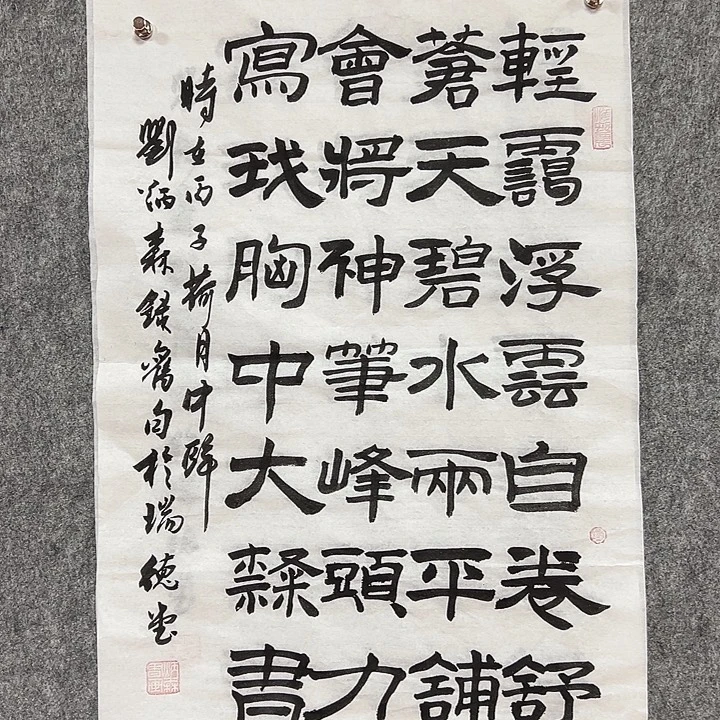 輕靄浮雲自卷舒
蒼天碧水兩平舖
會將神筆峰頭力
寫我胸中大隸書
時在丙子荷月中浣
劉炳森錄舊句於瑞德堂